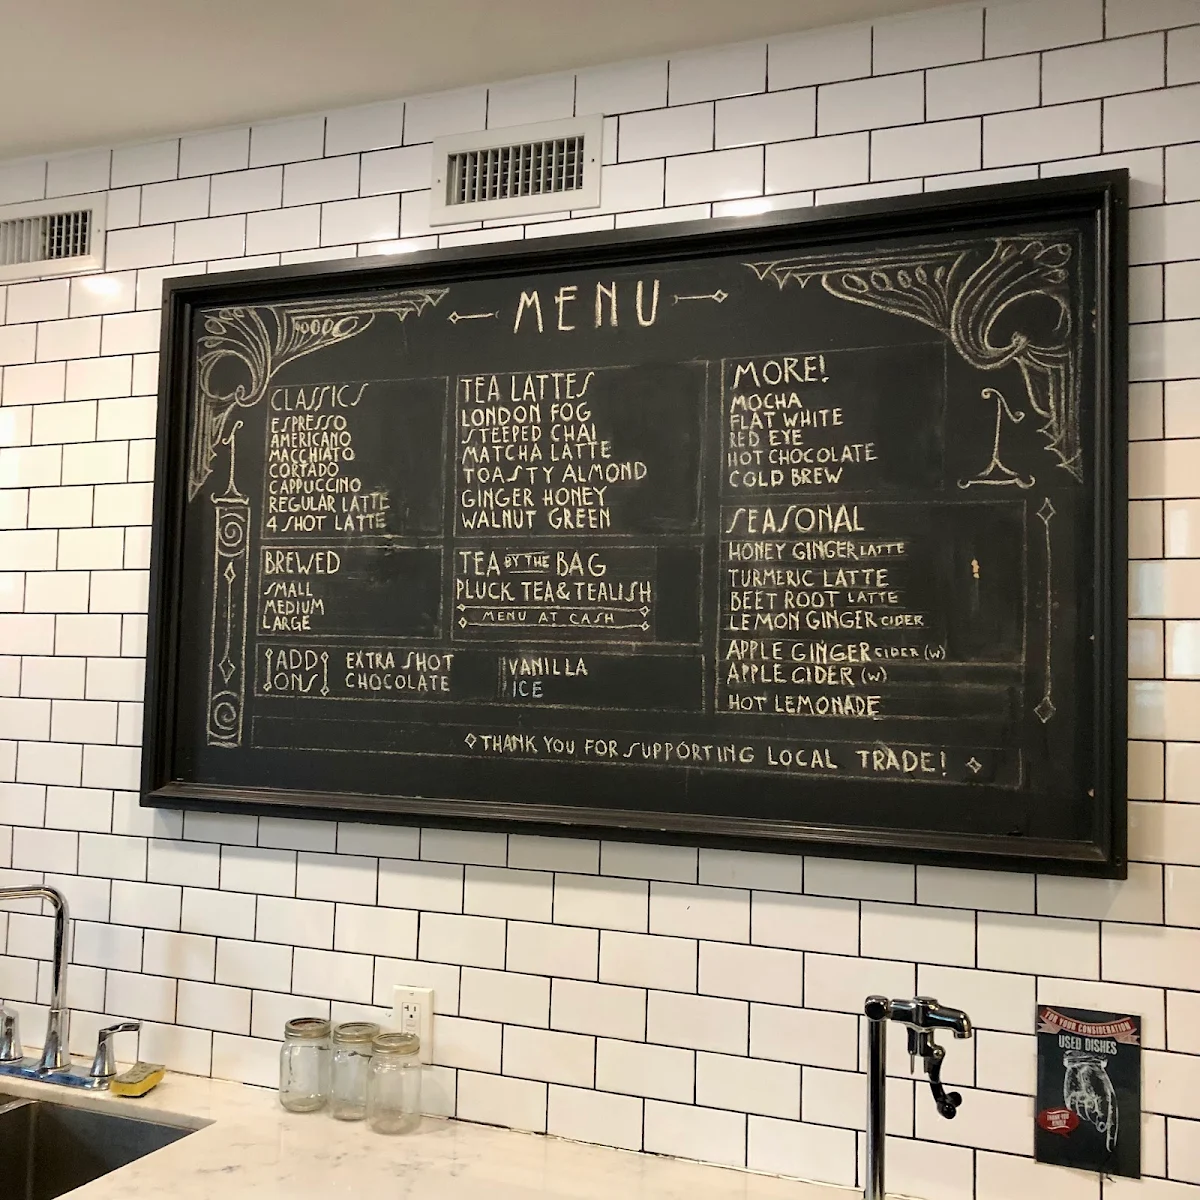 MENU
CLASSICS
ESPRESSO
AMERICANO
MACCHIATO
CORTADO
CAPPUCCINO
REGULAR LATTE
4 SHOT LATTE
BREWED
SMALL
MEDIUM
LARGE
ADD ONS
EXTRA SHOT
CHOCOLATE
VANILLA
ICE
TEA LATTES
LONDON FOG
STEEPED CHAI
MATCHA LATTE
TOASTY ALMOND
GINGER HONEY
WALNUT GREEN
TEA BY THE BAG
PLUCK TEA & TEALISH
MENU AT CASH
MORE!
MOCHA
FLAT WHITE
RED EYE
HOT CHOCOLATE
COLD BREW
SEASONAL
HONEY GINGER LATTE
TURMERIC LATTE
BEET ROOT LATTE
LEMON GINGER CIDER
APPLE GINGER CIDER (W)
APPLE CIDER (W)
HOT LEMONADE
THANK YOU FOR SUPPORTING LOCAL TRADE!
FOR YOUR CONSIDERATION
USED DISHES
THANK YOU